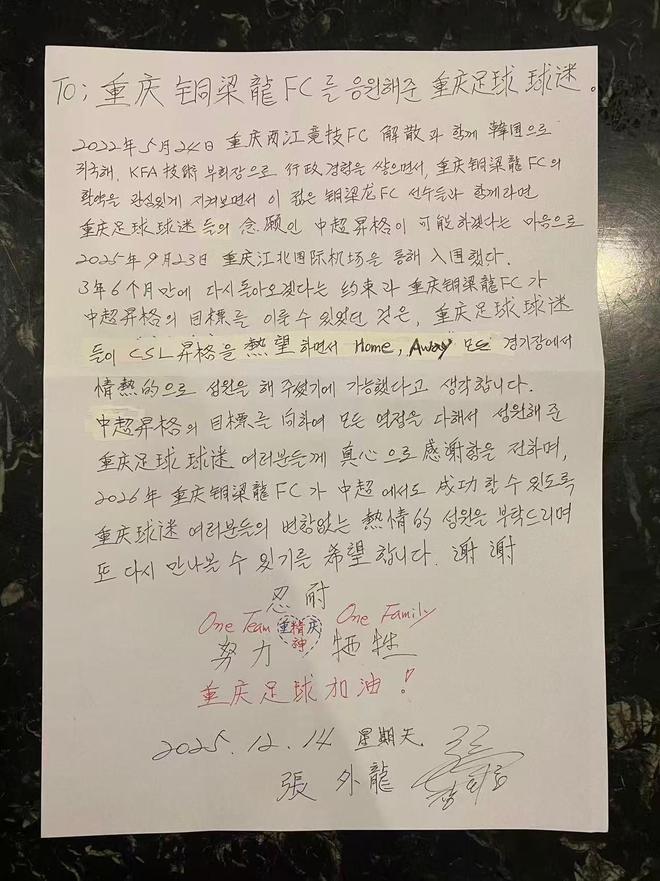 To; 重庆 铜梁龍FC를 응원해준 重庆足球 球迷。
2022年 5月24日 重庆两江竞技FC 解散과 함께 韓国으로
귀국해, KFA 技術 부회장으로 行政경험을 쌓으면서, 重庆铜梁龍FC의
활약을 관심있게 지켜보면서 이 젊은 铜梁龙FC 선수들과 함께라면
重庆足球球迷들의 念願인 中超昇格이 可能하겠다는 마음으로
2025年 9月23日 重庆江北国际机场을 통해 入国했다.
3年6个月만에 다시돌아오겠다는 约束과 重庆铜梁龍FC가
中超昇格의 目標를 이룰 수 있었던 것은, 重庆足球球迷
들이 CSL昇格을 熱望하면서 Home, Away 모든 경기장에서
情熱的으로 성원을 해 주셨기에 가능했다고 생각합니다.
中超昇格의 目標를 向하여 모든 역정을 다해서 성원해 준
重庆足球 球迷 여러분들께 真心으로 感谢함을 전하며,
2026年 重庆铜梁龍FC가 中超에서도 成功할 수 있도록
重庆球迷 여러분들의 변함없는 熱情的 성원을 부탁드리며
또 다시 만나볼 수 있기를 希望합니다. 谢谢
忍耐
One Team 重精庆神 One Family
努力 牺牲
重庆足球加油！
2025.12.14 星期天.
張 外龍 장외룡